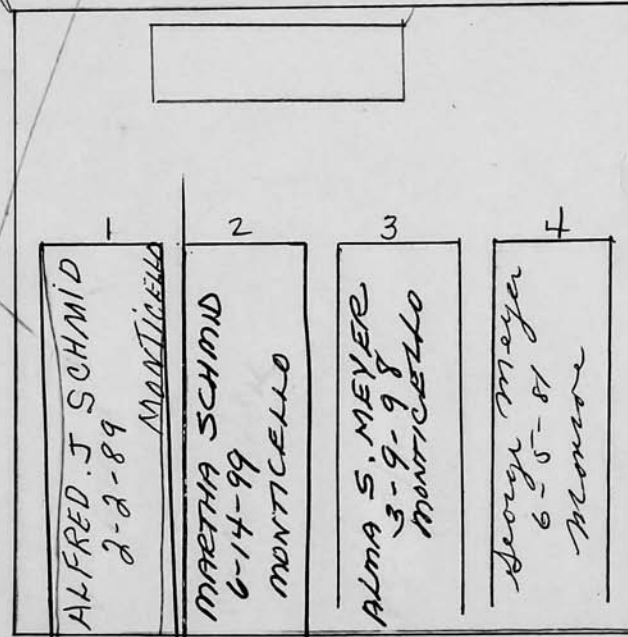 1
ALFRED. J SCHMID
2-2-89
MONTICELLO
2
MARTHA SCHMID
6-14-99
MONTICELLO
3
ALMA S. MEYER
3-9-98
MONTICELLO
4
George Meyer
6-5-81
Monroe